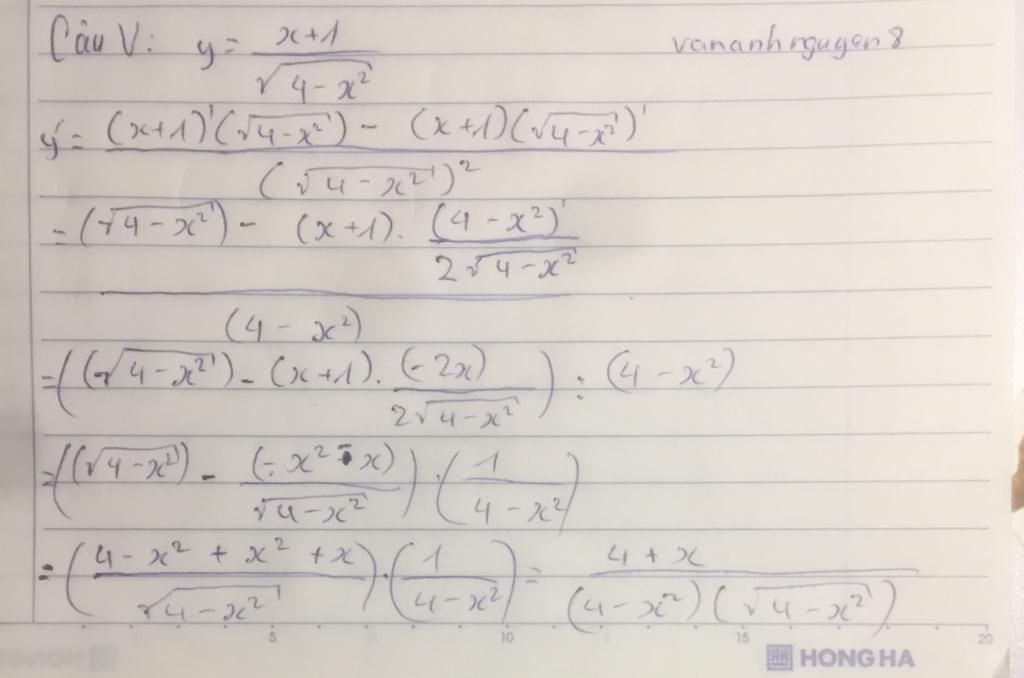 Câu V: y = \frac{x+1}{\sqrt{4-x^2}} vananhnguyen8
y' = \frac{(x+1)'(\sqrt{4-x^2}) - (x+1)(\sqrt{4-x^2})'}{(\sqrt{4-x^2})^2}
= \frac{(\sqrt{4-x^2}) - (x+1) \cdot \frac{(4-x^2)'}{2\sqrt{4-x^2}}}{(4-x^2)}
= \left( (\sqrt{4-x^2}) - (x+1) \cdot \frac{(-2x)}{2\sqrt{4-x^2}} \right) : (4-x^2)
= \left( (\sqrt{4-x^2}) - \frac{(-x^2-x)}{\sqrt{4-x^2}} \right) \cdot \left( \frac{1}{4-x^2} \right)
= \left( \frac{4-x^2+x^2+x}{\sqrt{4-x^2}} \right) \cdot \left( \frac{1}{4-x^2} \right) = \frac{4+x}{(4-x^2)(\sqrt{4-x^2})}
5 10 15 20
HONG HA